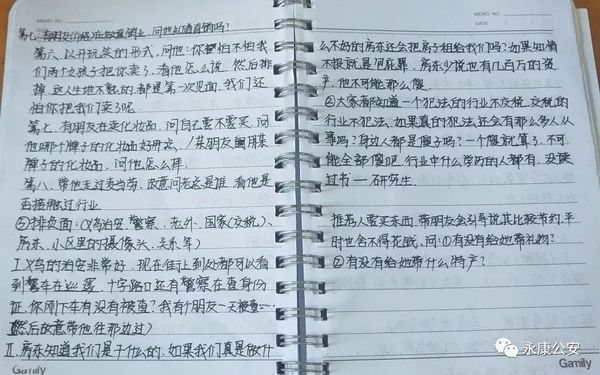 MEMO NO.
DATE / /
第七.有朋友介绍在做直销业,问他知道直销吗?
第六、以开玩笑的形式,问他:你害怕不怕我
们两个女孩子把你卖了.看他怎么说 然后排
掉 这人生地不熟的,都是第一次见面,我们还
怕你把我们卖了呢.
第七.有朋友在卖化妆品,问自己需不需要.问
他哪个牌子的化妆品好用
牌子的化妆品,问他怎么样.
第八.带他走过麦当劳,故意问老总是谁 看他是
否接触过行业
⑤排负面:(义乌治安、警察、老外、国家(交税)、
房东、小区里的摄像头、关系等)
I 义乌的治安非常好,现在街上到处都可以看
到警车在巡逻,十字路口还有警察在查身份
证.你刚下车有没有被查?我有个朋友一天被查…
然后故意带他往那边过)
II.房东知道我们是干什么的,如果我们真是做什
Gamly
MEMO NO.
DATE / /
么不好的房东还会把房子租给我们吗?如果知情
不报就是包庇罪,房东少说也有几百万的资
产.他不可能那么傻.
②大家都知道一个犯法的行业不交税,交税的
行业不犯法、如果真的犯法还会有那么多人从
事吗?身边人都是傻子吗?一个傻就算了,不可
能全部傻吧.行业中什么学历的人都有,没读
过书——研究生
推荐人需买东西.带朋友会引导说其比较节约,平
时也舍不得花钱,问:①有没有给她带礼物?
②有没有给她带什么特产?
永康公安
Gamly